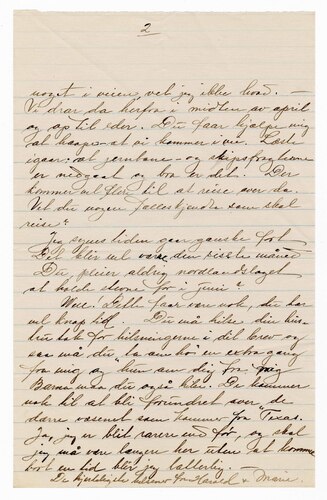 2
noget i veien vet jeg ikke hvad. —
Vi drar da herfra i midten av april
og op til der. Du faar hjælpe mig
at haape at vi kommer i vei. Læste
igaar at jernbane- og skipsfragtene
er nedgaat og bra er det. Der
kommer vel flere til at reise over da.
Vet du nogen fælleskjendte som skal
reise?
Jeg synes tiden gaar ganske fort
Det blir vel den siste måned
Du, pleier aldrig nordlandslaget
at holde stevne før i juni?
Well! Dette faar være nok, du har
vel knap tid. Du må hilse din
tak for hilsningerne i dit brev og
saa må du ta ham en extra gang
fra mig og
må du også hilse. De kommer
nok til at bli forundret over de
dære væsenet som kommer fra "Texas.
Ja, jeg er blit rarere end før, og skal
jeg må være længer her uten at komme
bort en tid blir jeg latterlig. —
De hjerteligste hilsener fra Harald & Marie.